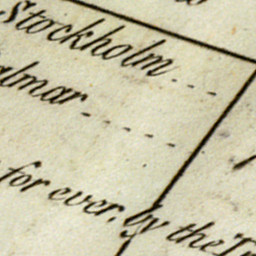 Stockholm....
almar......
for ever, by the Tr